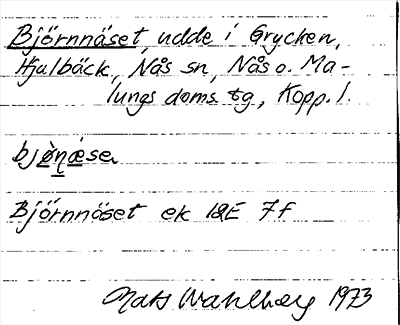 Björnnäset, udde i Grycken,
Hjulbäck, Nås sn, Nås o. Ma-
lungs doms tg, Kopp. l.
bjø̀ṇæsea
Björnnäset ek 12E 7f
Mats Wahlberg 1973